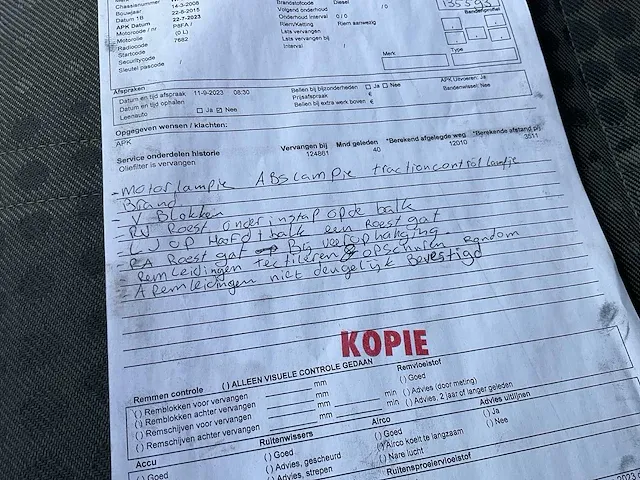 Chassisnummer
Bouwjaar 14-3-2006
Datum 1B 22-8-2015
APK Datum 22-7-2023
Motorcode / nr P8FA /
Motorolie (0 L)
Radiocode 7682
Startcode
Securitycode /
Sleutel pascode /
Brandstofcode Diesel
Volgend onderhoud / 0
Onderhoud interval 0 / 0
Riem/Ketting Riem aanwezig
Lats vervangen
Lats vervangen bij
Interval /
135593
Bandenprofiel
Merk Type
Afspraken
Datum en tijd afspraak 11-9-2023 08:30
Datum en tijd ophalen
Leenauto Ja Nee
Bellen bij bijzonderheden Ja Nee
Prijsafspraak €
Bellen bij extra werk boven €
APK Uitvoeren: Ja
Bandenwissel: Nee
Opgegeven wensen / klachten:
APK
Service onderdelen historie Vervangen bij Mnd geleden *Berekend afgelegde weg *Berekende afstand p/j
Oliefilter is vervangen 124861 40 12010 3511
- Motorlampje ABS lampje tractioncontrol lampje
Brand
- V Blokken
- RV Roest onder instap op de balk
- LV op Hoofdbalk een Roest gat
- RA Roest gat Bij veerophanging
- Remleidingen Rondom
- A Remleidingen niet deugelijk Bevestigd
KOPIE
Remmen controle ( ) ALLEEN VISUELE CONTROLE GEDAAN Remvloeistof
( ) Remblokken voor vervangen mm ( ) Goed
( ) Remblokken achter vervangen mm ( ) Advies (door meting)
( ) Remschijven voor vervangen mm min ( ) Advies, 2 jaar of langer geleden
( ) Remschijven achter vervangen mm min
Accu Ruitenwissers Airco Advies uitlijnen
( ) Goed ( ) Goed ( ) Goed ( ) Ja
( ) Advies, gescheurd ( ) Airco koelt te langzaam ( ) Nee
( ) Advies, strepen ( ) Nare lucht
Ruitensproeiervloeistof